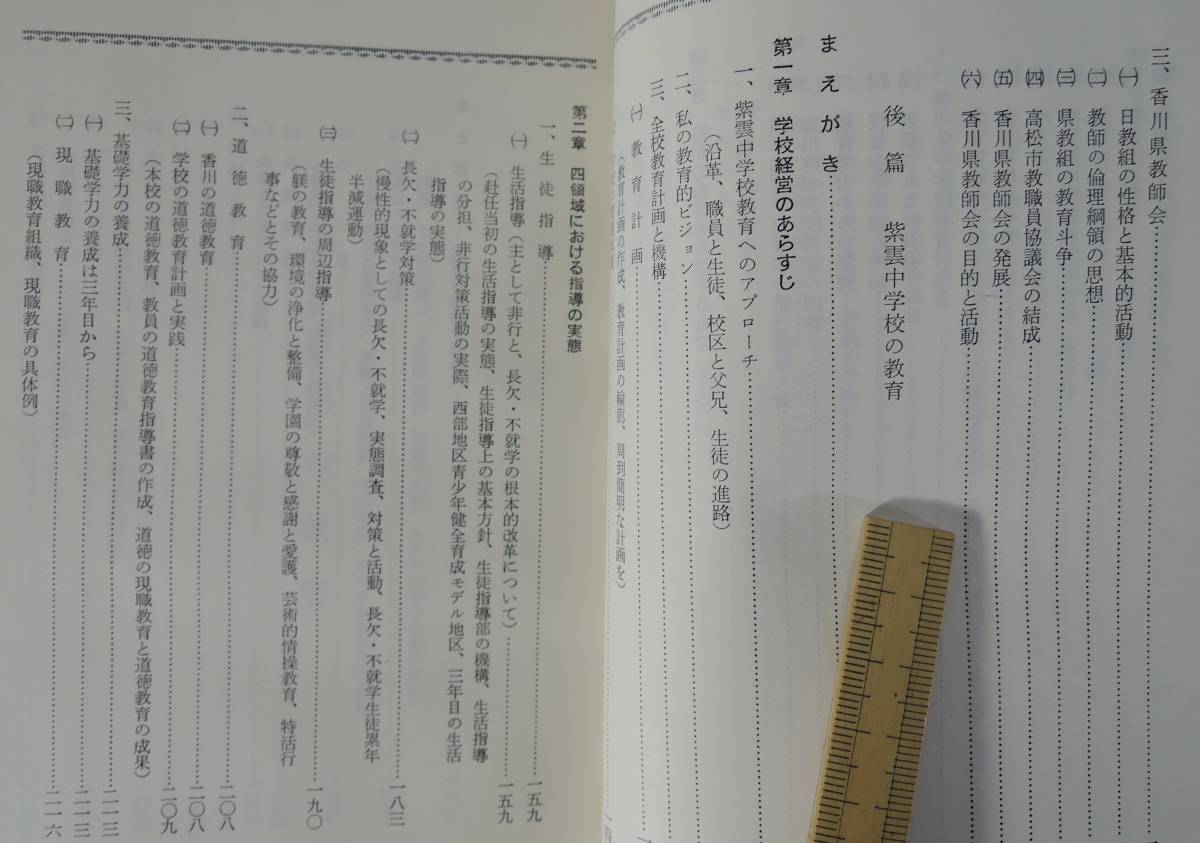 三、香川県教師会……
㈠ 日教組の性格と基本的活動……
㈡ 教師の倫理綱領の思想……
㈢ 県教組の教育斗争……
㈣ 高松市教職員協議会の結成……
㈤ 香川県教師会の発展……
㈥ 香川県教師会の目的と活動……
後篇 紫雲中学校の教育
まえがき……
第一章 学校経営のあらすじ
一、紫雲中学校教育へのアプローチ……
（沿革、職員と生徒、校区と父兄、生徒の進路）
二、私の教育的ビジョン……
三、全校教育計画と機構……
㈠ 教育計画……
（教育計画の作成、教育計画の輪廓、周到簡明な計画を）
第二章 四領域における指導の実態
一、生徒指導……一五九
㈠ 生活指導（主として非行と、長欠・不就学の根本的改革について）……一五九
（赴任当初の生活指導の実態、生徒指導上の基本方針、生徒指導部の機構、生活指導
の分担、非行対策活動の実際、西部地区青少年健全育成モデル地区、三年目の生活
指導の実態）
㈡ 長欠・不就学対策……一八三
（慢性的現象としての長欠・不就学、実態調査、対策と活動、長欠・不就学生徒累年
半減運動）
㈢ 生徒指導の周辺指導……一九〇
（躾の教育、環境の浄化と整備、学園の尊敬と感謝と愛護、芸術的情操教育、特活行
事などとその協力）
二、道徳教育……二〇八
㈠ 香川の道徳教育……二〇八
㈡ 学校の道徳教育計画と実践……二〇九
（本校の道徳教育、教員の道徳教育指導書の作成、道徳の現職教育と道徳教育の成果）
三、基礎学力の養成……二一三
㈠ 基礎学力の養成は三年目から……二一三
㈡ 現職教育……二一六
（現職教育組織、現職教育の具体例）